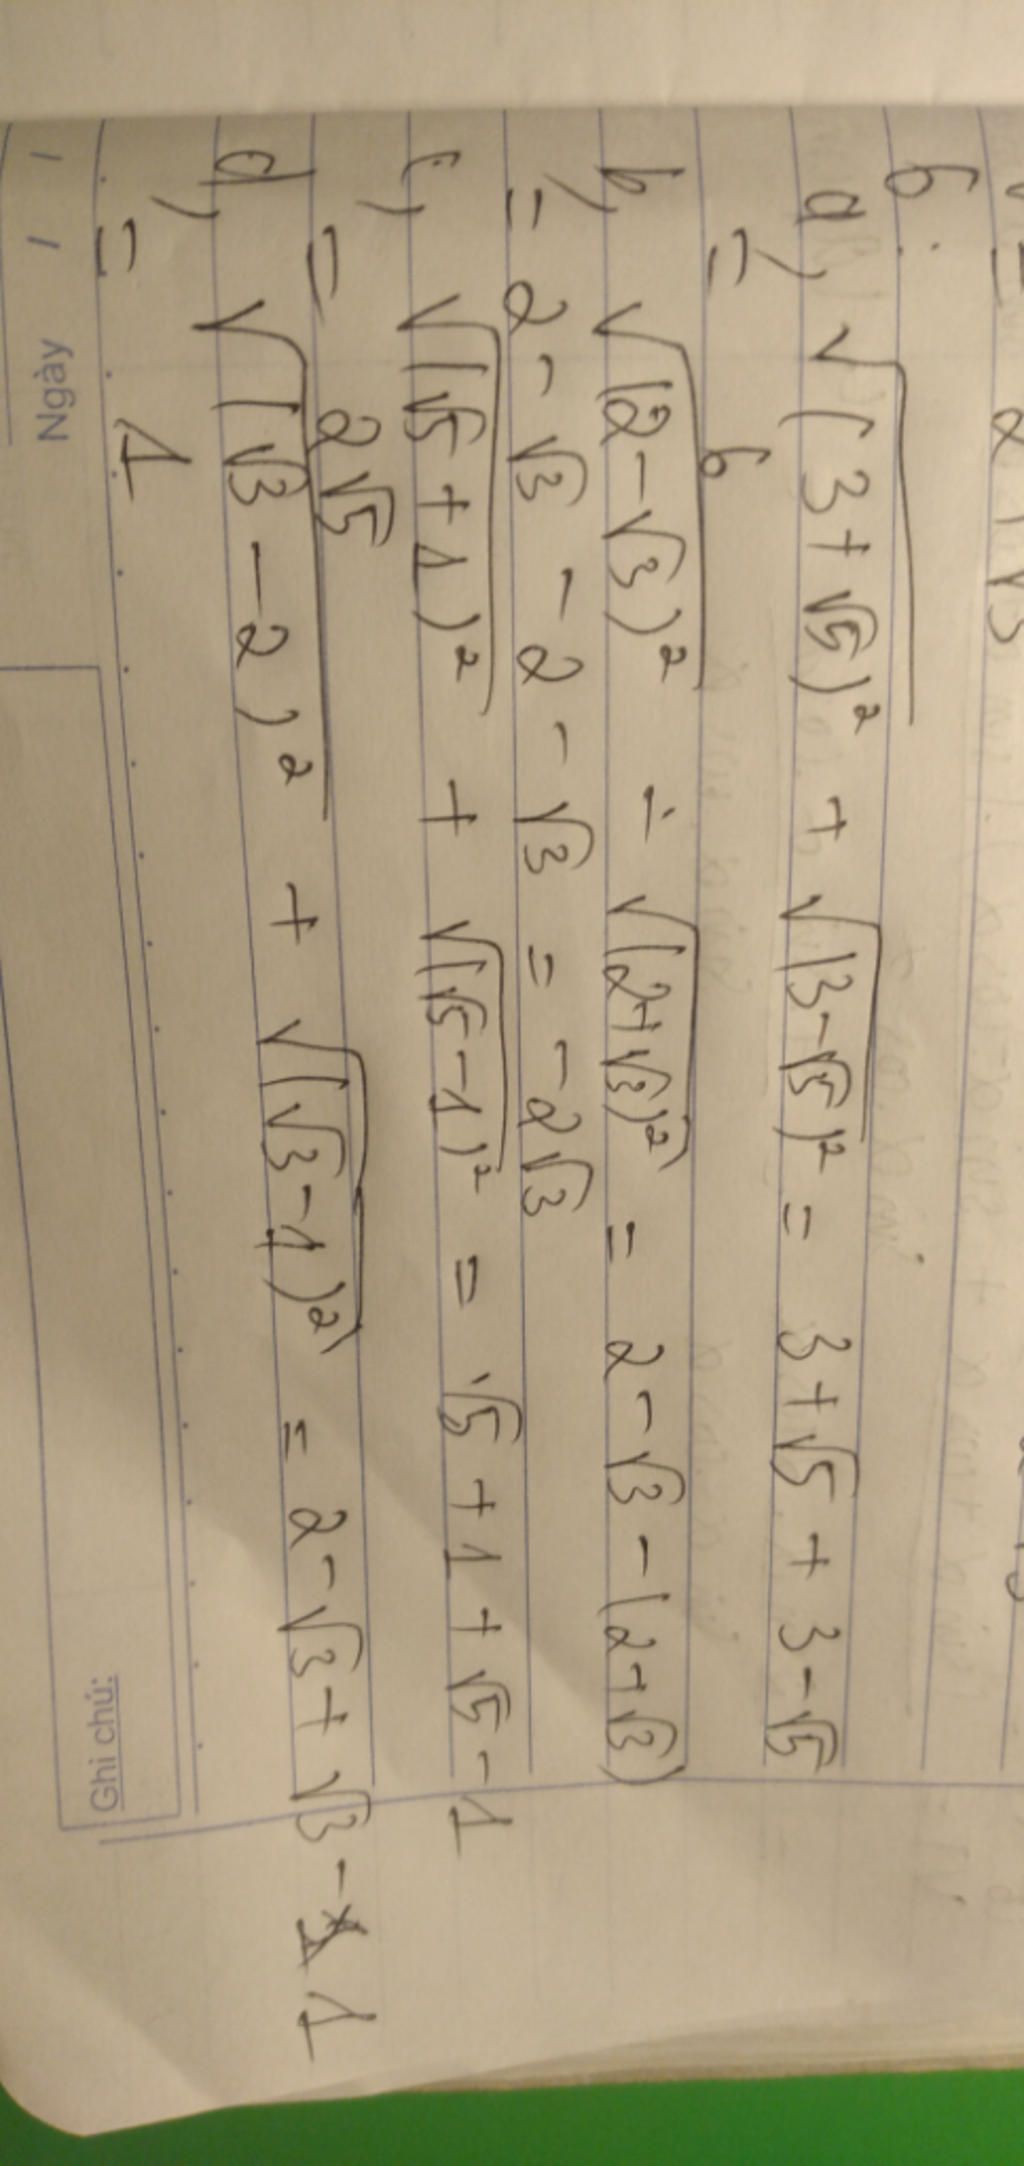 6.
a, √(3+√5)² + √(3-√5)² = 3+√5 + 3-√5
= 6
b, √(2-√3)² - √(2+√3)² = 2-√3-(2+√3)
= 2-√3 - 2-√3 = -2√3
c, √(√5+1)² + √(√5-1)² = √5+1+√5-1
= 2√5
d, √(√3-2)² + √(√3-1)² = 2-√3+√3-1
= 1
Ngày / /
Ghi chú: